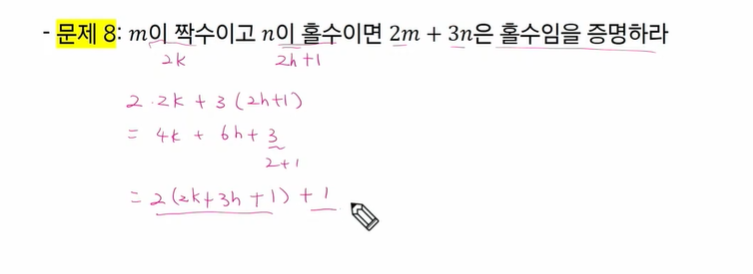 - 문제 8: m이 짝수이고 n이 홀수이면 2m + 3n은 홀수임을 증명하라
2k 2h+1
2·2k + 3(2h+1)
= 4k + 6h + 3
2+1
= 2(2k+3h+1) + 1